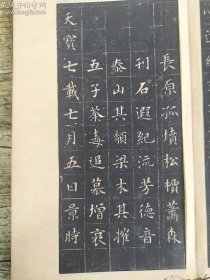 長原孤墳松檟蕭森
刊石遐紀流芳德音
泰山其頹梁木其摧
五子荼毒追慕增哀
天寶七載七月五日景時